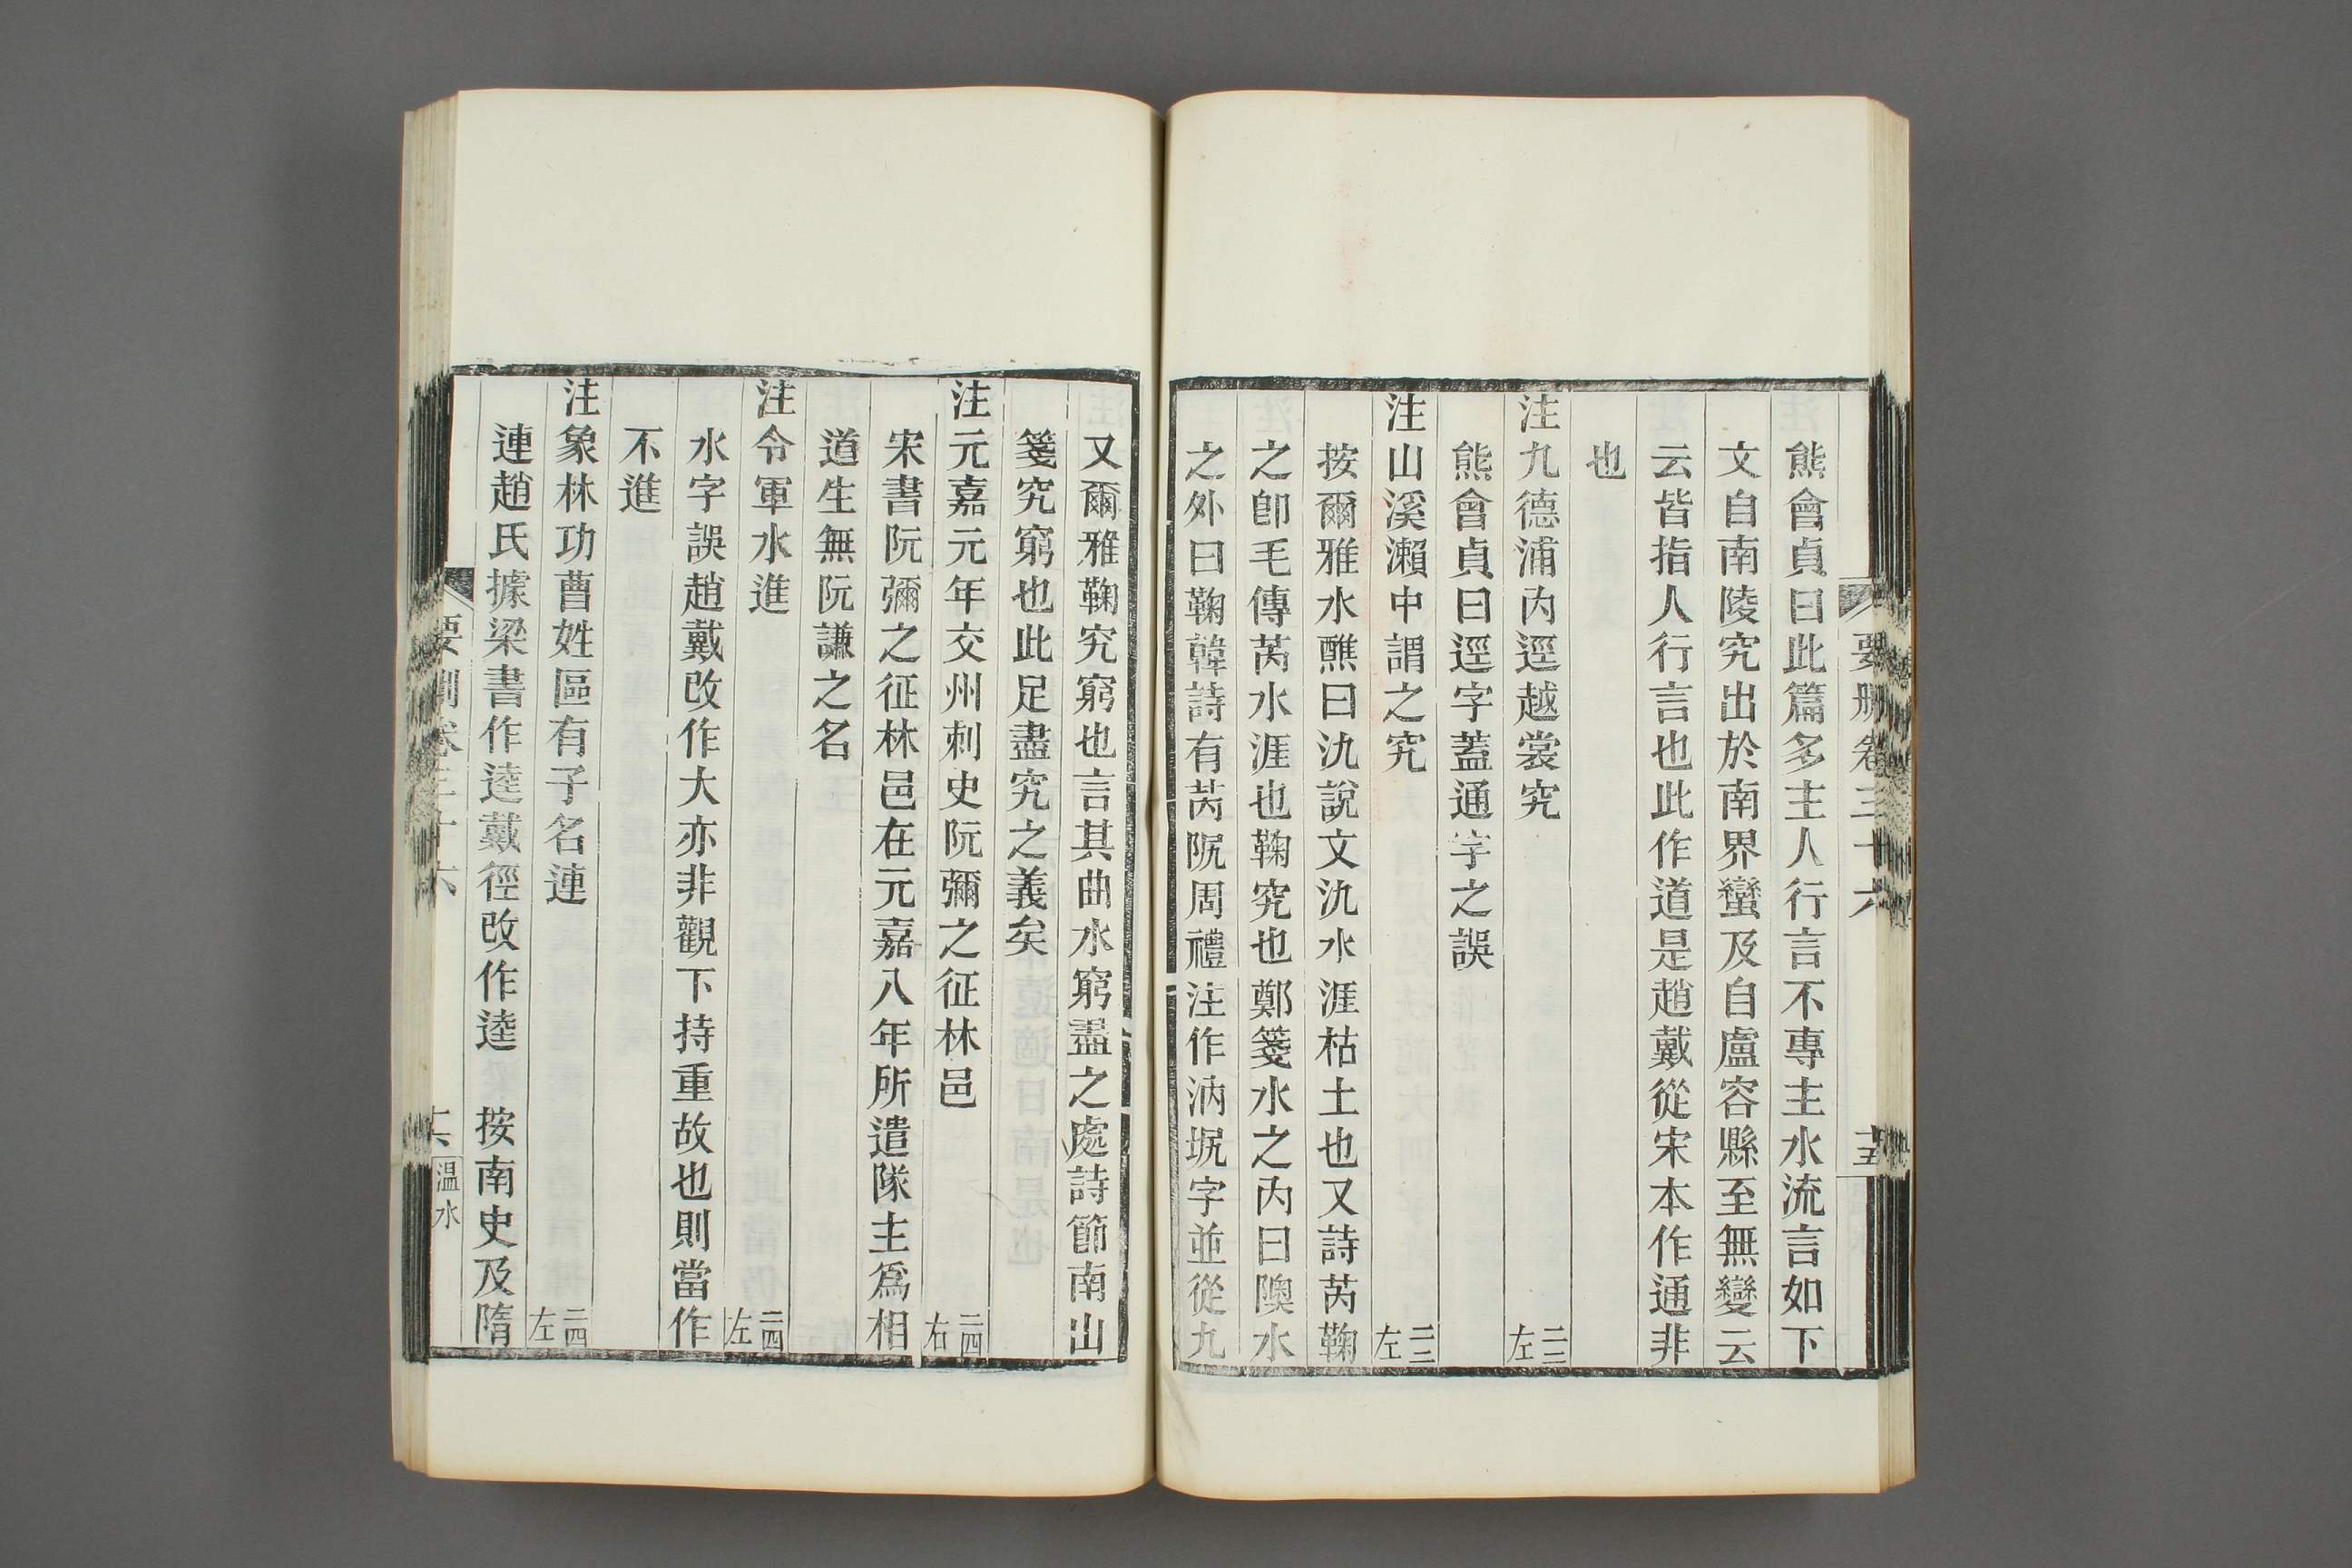 要刪卷三十六
十五
熊會貞曰此篇多主人行言不專主水流言如下
文自南陵究出於南界蠻及自盧容縣至無變云
云皆指人行言也此作道是趙戴從宋本作通非
也
注九德浦內逕越裳究 二三左
熊會貞曰逕字蓋通字之誤
注山溪瀨中謂之究 二三左
按爾雅水醮曰氿說文氿水涯枯土也又詩芮鞫
之卽毛傳芮水涯也鞫究也鄭箋水之內曰隩水
之外曰鞫韓詩有芮阮周禮注作汭坭字並從九
又爾雅鞫究窮也言其曲水窮盡之處詩節南山
箋究窮也此足盡究之義矣
注元嘉元年交州刺史阮彌之征林邑 二四右
宋書阮彌之征林邑在元嘉八年所遣隊主爲相
道生無阮謙之名
注令軍水進 二四左
水字誤趙戴改作大亦非觀下持重故也則當作
不進
注象林功曹姓區有子名連 二四左
連趙氏據梁書作逵戴徑改作逵 按南史及隋
要刪卷三十六
十六
温水